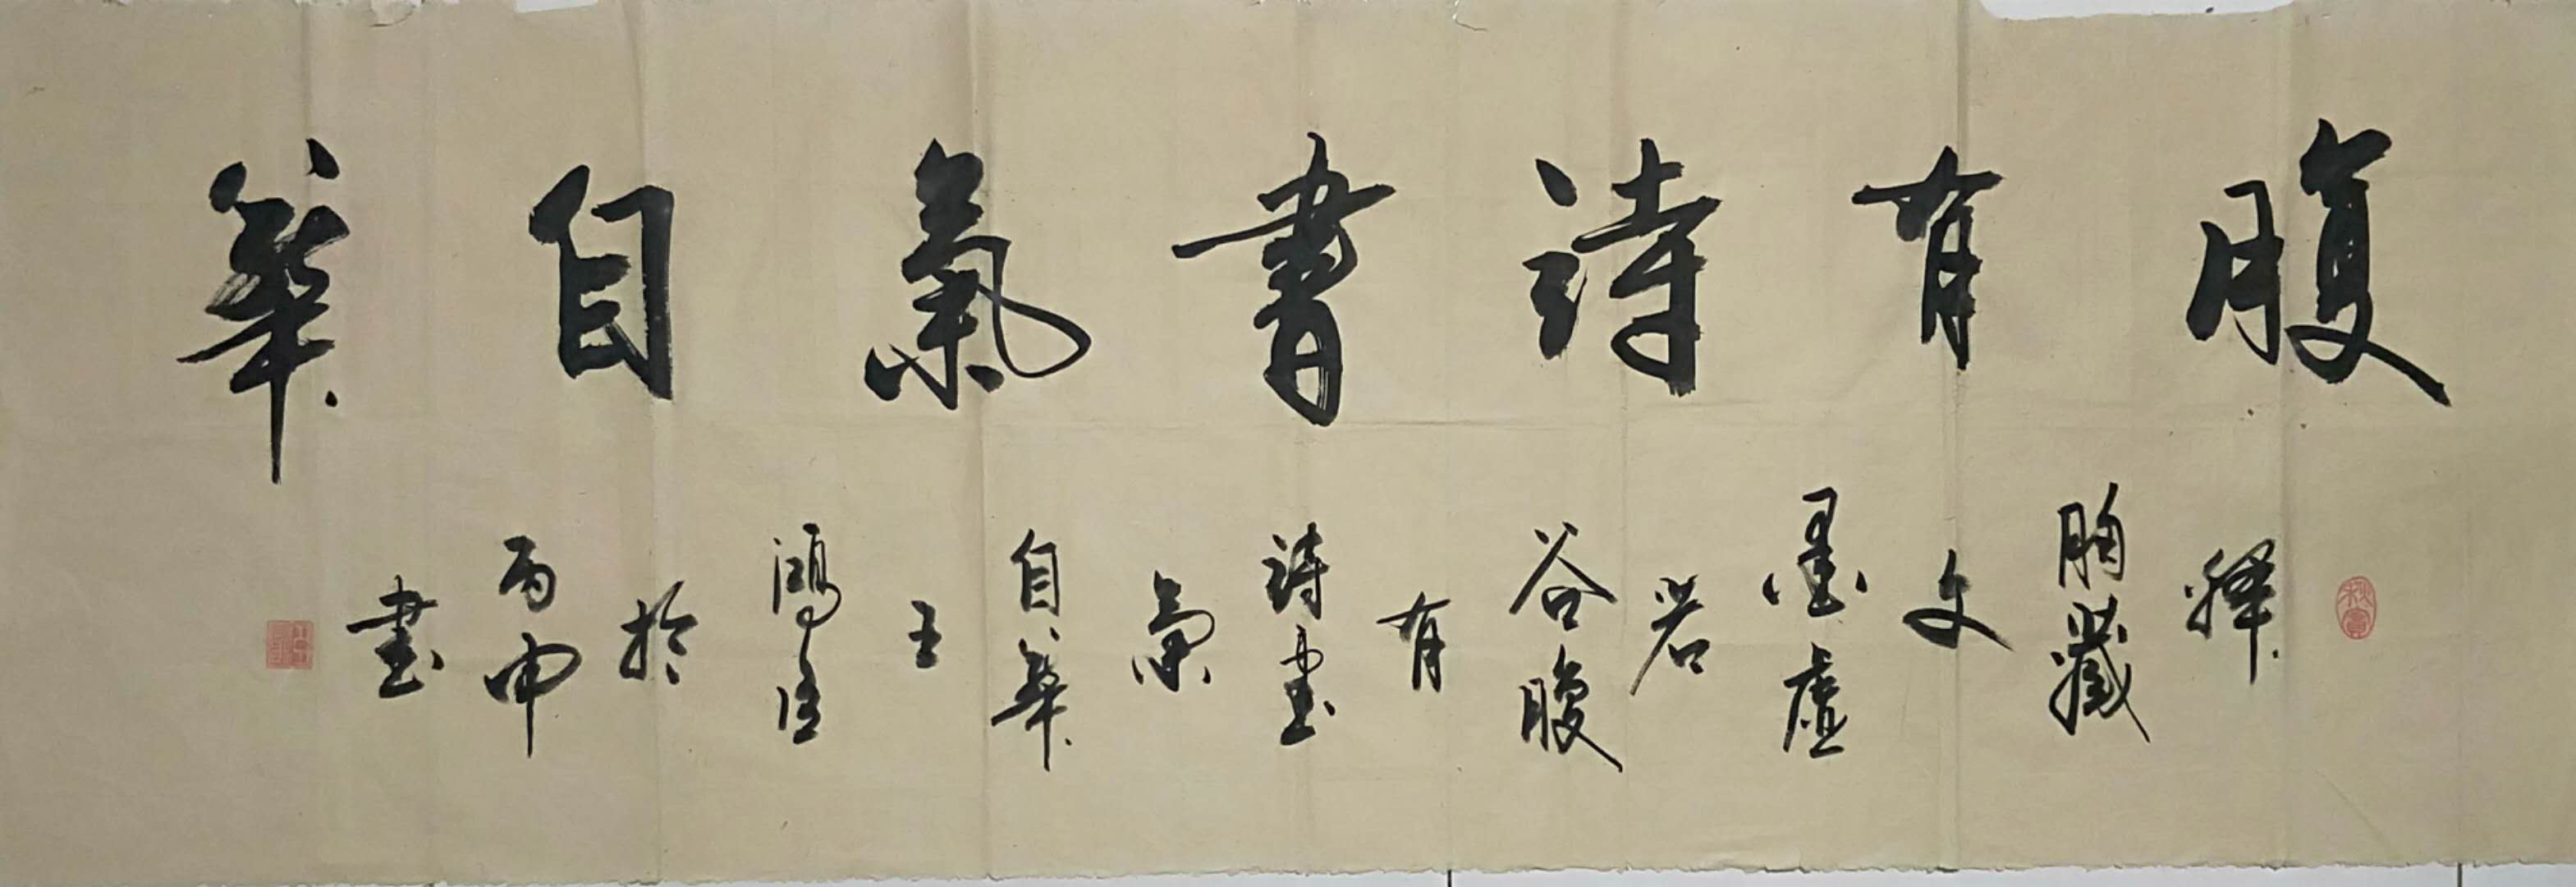 腹有詩書氣自華
釋胸藏文墨虛若谷腹有詩書氣自華王鴻 於丙申書